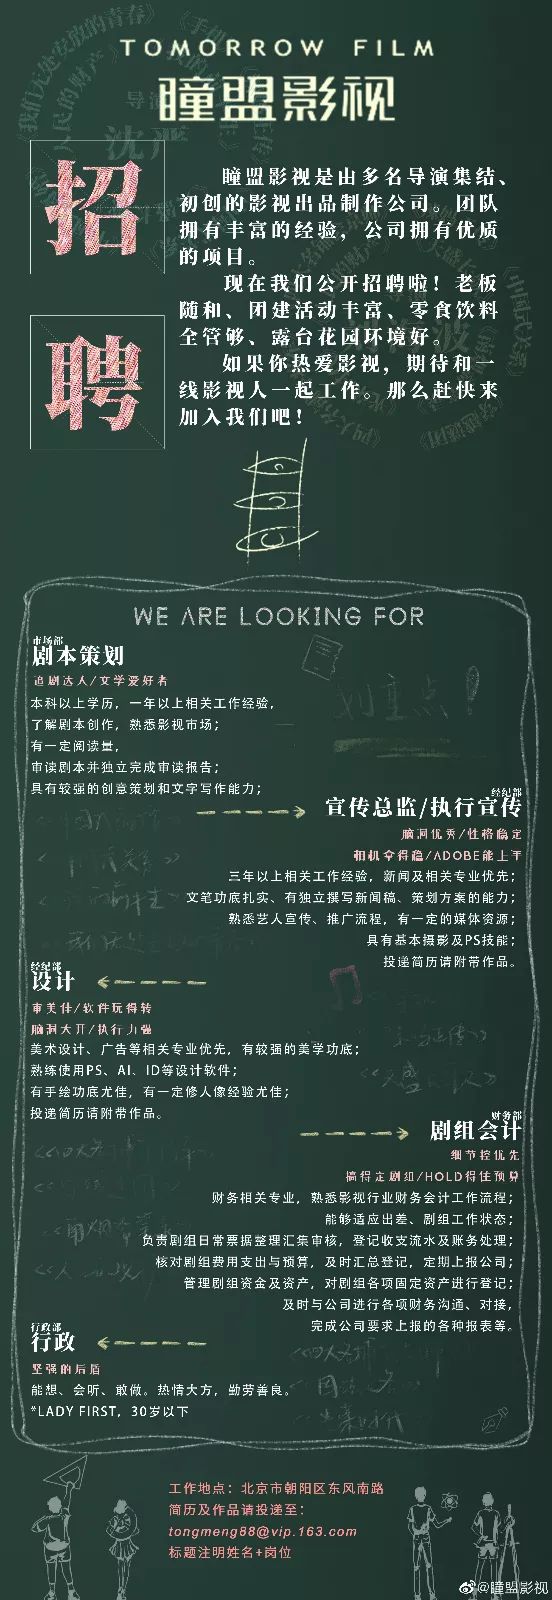 TOMORROW FILM
瞳盟影视
招
聘
瞳盟影视是由多名导演集结、
初创的影视出品制作公司。团队
拥有丰富的经验，公司拥有优质
的项目。
现在我们公开招聘啦！老板
随和、团建活动丰富、零食饮料
全管够、露台花园环境好。
如果你热爱影视，期待和一
线影视人一起工作。那么赶快来
加入我们吧！
WE ARE LOOKING FOR
市场部
剧本策划
追剧达人/文学爱好者
本科以上学历，一年以上相关工作经验，
了解剧本创作，熟悉影视市场；
有一定阅读量，
审读剧本并独立完成审读报告；
具有较强的创意策划和文字写作能力；
划重点！
经纪部
宣传总监/执行宣传
脑洞优秀/性格稳定
相机拿得稳/ADOBE能上手
三年以上相关工作经验，新闻及相关专业优先；
文笔功底扎实、有独立撰写新闻稿、策划方案的能力；
熟悉艺人宣传、推广流程，有一定的媒体资源；
具有基本摄影及PS技能；
投递简历请附带作品。
经纪部
设计
审美佳/软件玩得转
脑洞大开/执行力强
美术设计、广告等相关专业优先，有较强的美学功底；
熟练使用PS、AI、ID等设计软件；
有手绘功底尤佳，有一定修人像经验尤佳；
投递简历请附带作品。
财务部
剧组会计
细节控优先
搞得定剧组/HOLD得住预算
财务相关专业，熟悉影视行业财务会计工作流程；
能够适应出差、剧组工作状态；
负责剧组日常票据整理汇集审核，登记收支流水及账务处理；
核对剧组费用支出与预算，及时汇总登记，定期上报公司；
管理剧组资金及资产，对剧组各项固定资产进行登记；
及时与公司进行各项财务沟通、对接，
完成公司要求上报的各种报表等。
行政部
行政
坚强的后盾
能想、会听、敢做。热情大方，勤劳善良。
*LADY FIRST，30岁以下
工作地点：北京市朝阳区东风南路
简历及作品请投递至：
tongmeng88@vip.163.com
标题注明姓名+岗位
@瞳盟影视